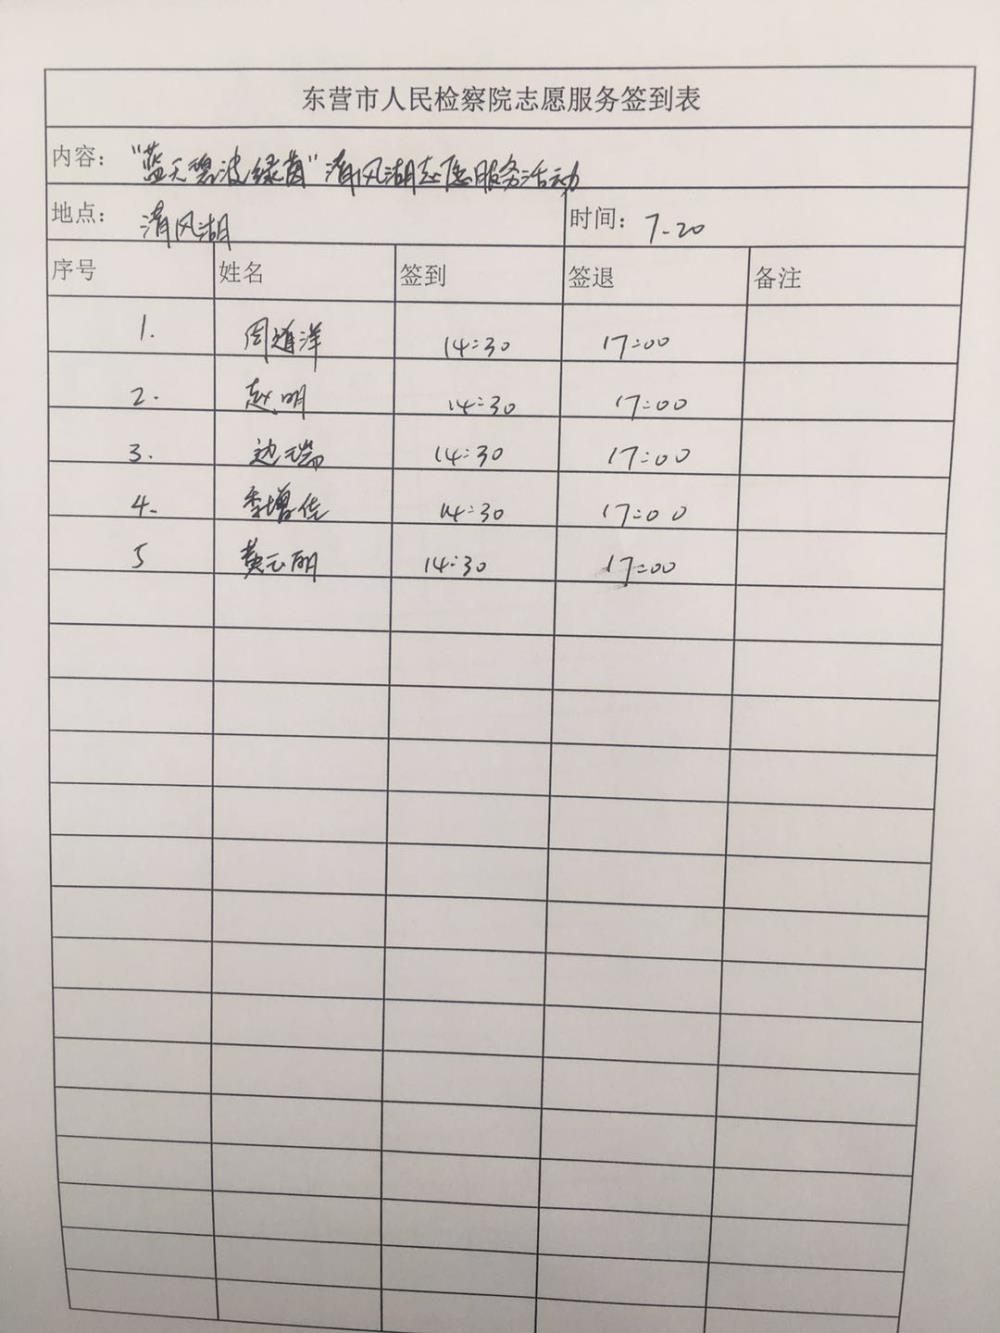 东营市人民检察院志愿服务签到表
内容：“蓝天碧波绿茵”清风湖志愿服务活动
地点：清风湖 时间：7-20
序号 姓名 签到 签退 备注
1. 周道洋 14:30 17:00
2. 赵明 14:30 17:00
3. 边瑞 14:30 17:00
4. 季增佳 14:30 17:00
5 黄云明 14:30 17:00